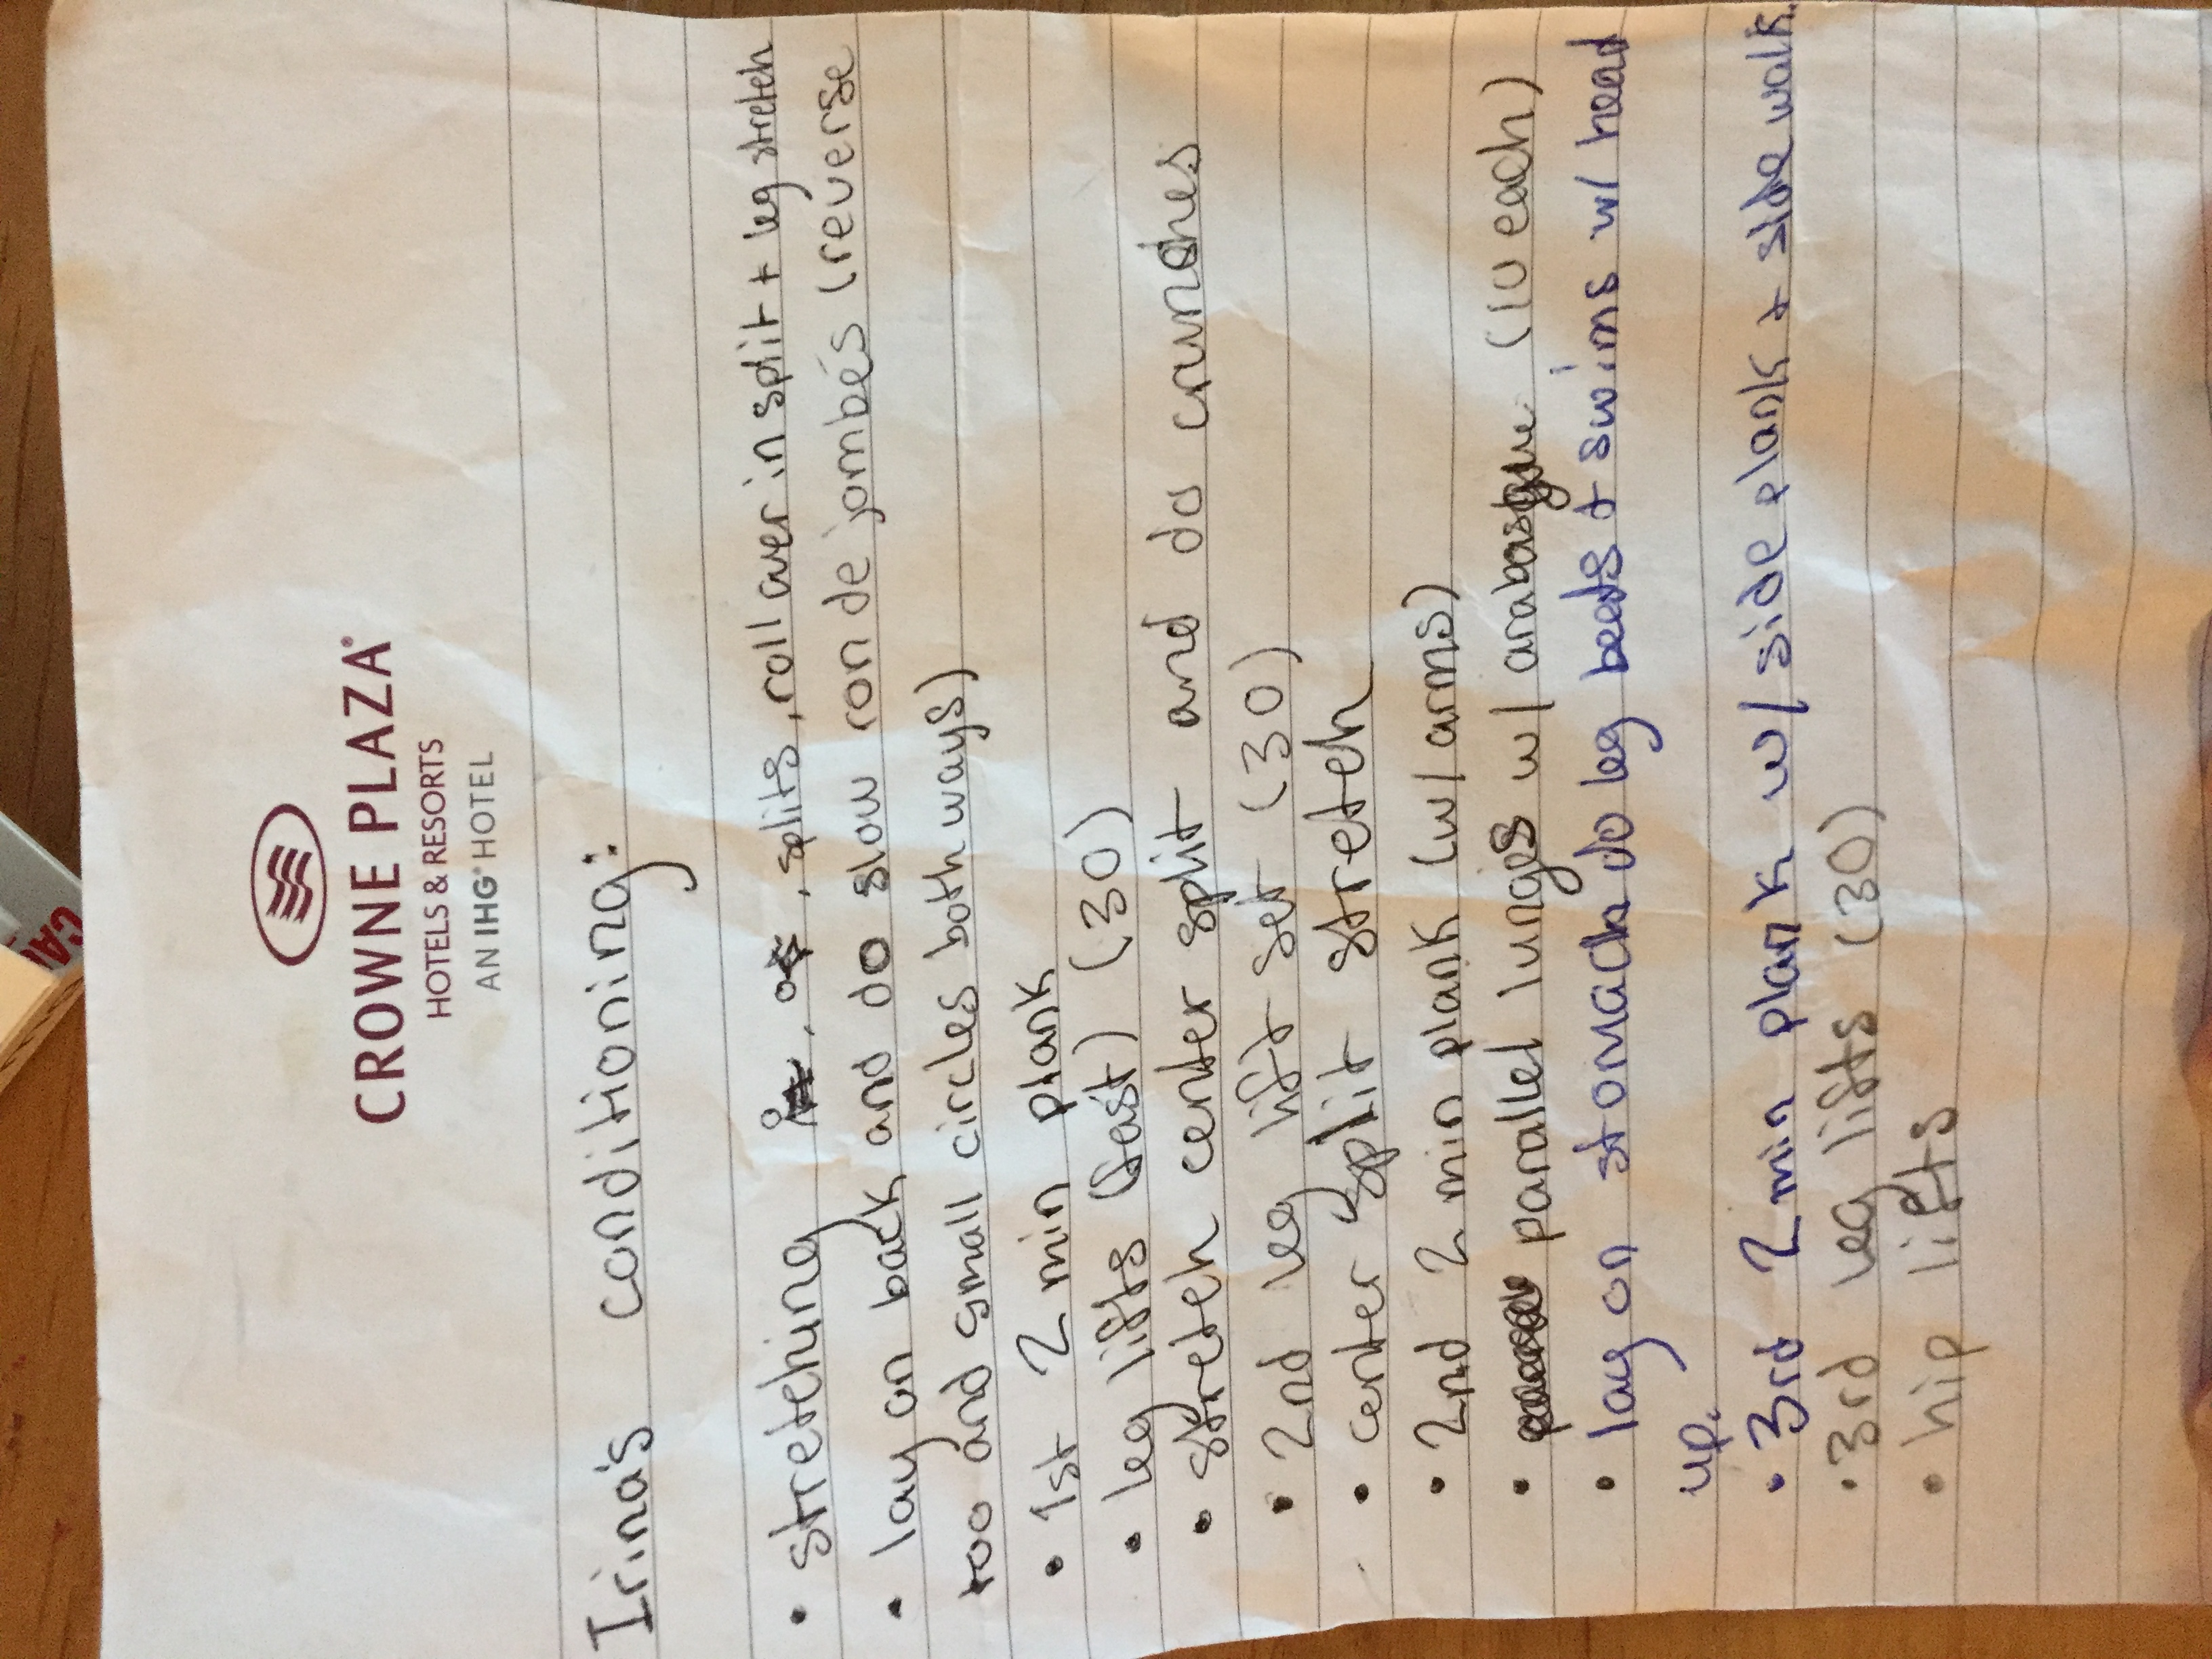 CROWNE PLAZA®
HOTELS & RESORTS
AN IHG® HOTEL
Irina's conditioning:
• stretching , splits, roll over in split + leg stretch
• lay on back and do slow ron de jombés (reverse
too and small circles both ways)
• 1st 2 min plank
• leg lifts (fast) (30)
• stretch center split and do crunches
• 2nd leg lift set (30)
• center split stretch
• 2nd 2 min plank (w/ arms)
• parallel lunges w/ arabasque (10 each)
• lay on stomach do leg beats + swims w/ head
up.
• 3rd 2 min plank w/ side plank + side walk.
• 3rd leg lifts (30)
• hip lifts
CA